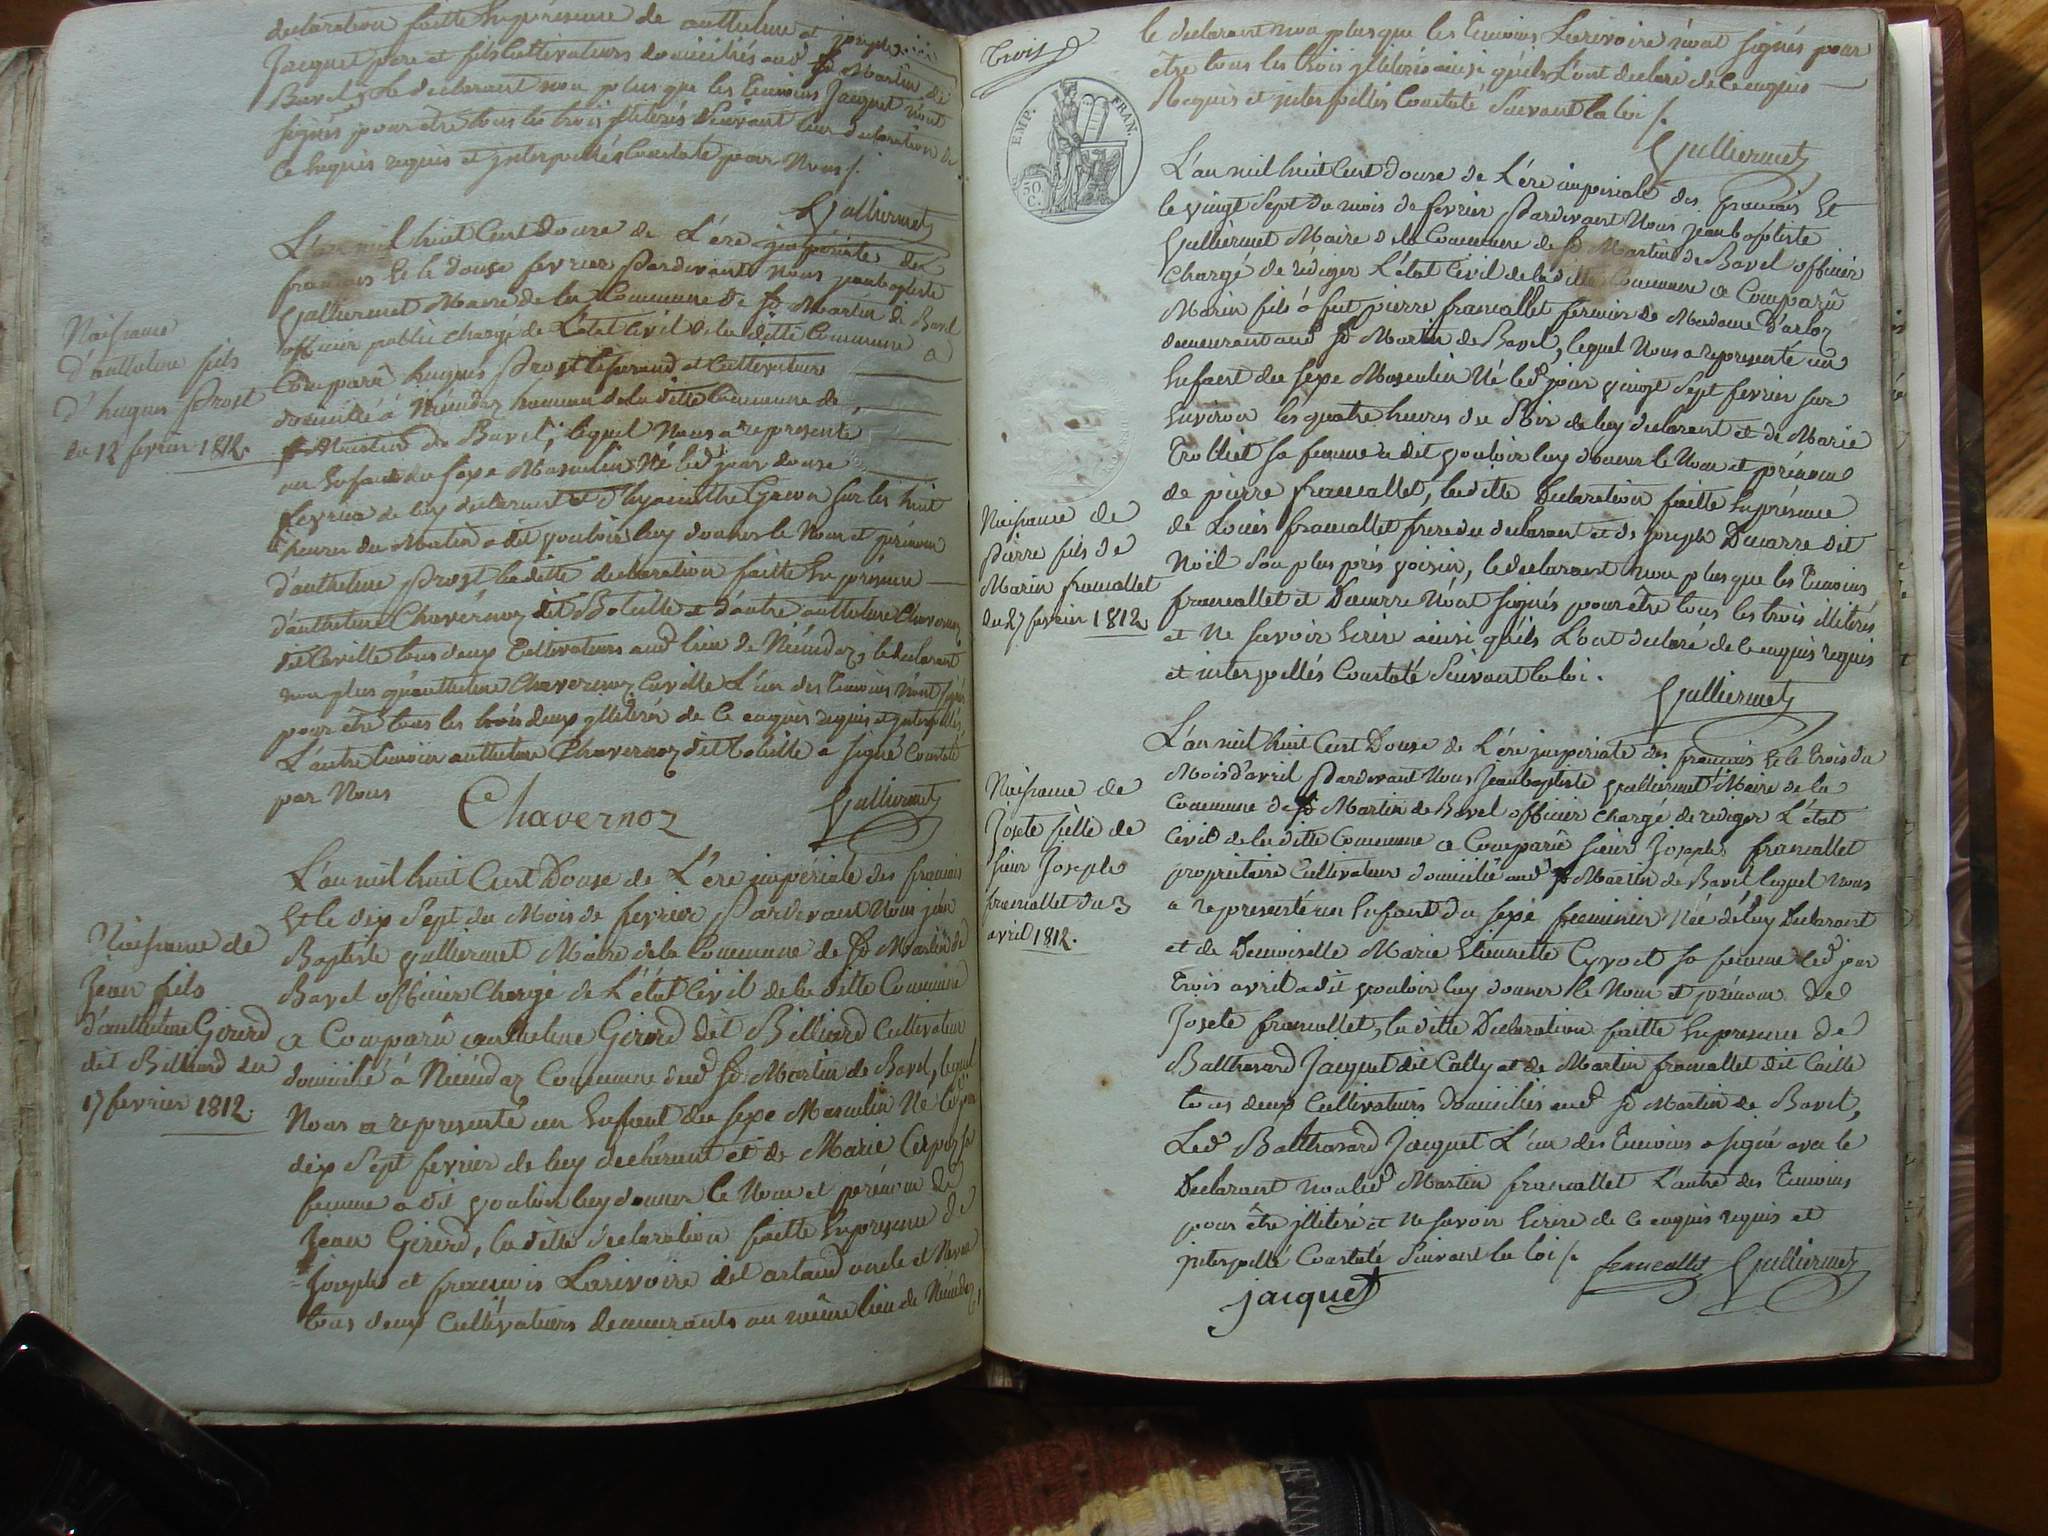 declaration faitte En présence de anthelme et joseph
Jacquet pere et fils Cultivateurs domiciliés aud St Martin de
Bavel, Le declarant non plus que les Temoins Jacquet n'ont
signés pour être tous les trois illiterés Suivant leur declaration de
Ce Enquis requis et interpellés Constaté par Nous /.
Gulliermet
L'an mil huit Cent Douze de L'ére imperiale des
francais Et le douze fevrier Pardevant Nous jeanbaptiste
Gulliermet Maire de la Commune de St Martin de Bavel
officier public chargé de L'état Civil de la ditte Commune a
Comparû hugues Prost et Cultivateur
domicilié à Niémdaz hameau de la ditte Commune de
St Martin de Bavel, lequel Nous a représenté
un Enfant du sexe Masculin Né led jour douze
fevrier de luy declarant et d'hyacinthe sur les huit
heures du Matin a dit vouloir luy donner le Nom et prénom
d'anthelme Prost ladite declaration faitte En présence
d'anthelme Chavernoz dit Boteille et d'autre anthelme Chavernoz
dit Caville tous deux Cultivateurs aud lieu de Niémdaz, le declarant
non plus qu'anthelme Chavernoz Caville L'un des Temoins n'ont signés
pour être tous les trois deux illiterés de Ce enquis requis et interpellés,
L'autre Temoin anthelme Chavernoz dit Boteille a signé Constaté
par Nous
Chavernoz Gulliermet
Naissance
d'anthelme fils
d'hugues Prost
du 12 fevrier 1812.
L'an mil huit Cent Douze de L'ére impériale des francais
Et le dix Sept du Mois de fevrier Pardevant Nous jean
Baptiste Gulliermet Maire de la Commune de St Martin de
Bavel officier Chargé de L'état Civil de la ditte Commune
a Comparû anthelme Girerd dit Billiard Cultivateur
domicilié à Niémdaz Commune dud St Martin de Bavel, lequel
Nous a representé un Enfant du sexe Masculin Né led jour
dix Sept fevrier de luy declarant et de Marie sa
femme a dit vouloir luy donner le Nom et prénom de
Jean Girerd, la ditte déclaration faitte En presence de
Joseph et francois Larivoire dit artaud oncle et Neveu
tous deux Cultivateurs demeurants au même lieu de Niémdaz,
Naissance de
Jean fils
d'anthelme Girerd
dit Billiard du
17 fevrier 1812.
Trois
EMP. FRAN.
50 C.
le declarant non plus que les Temoins Larivoire n'ont signés pour
être tous les trois illiterés ainsi qu'ils L'ont declaré de Ce enquis
Requis et interpellés Constaté Suivant la loi /.
Gulliermet
L'an mil huit Cent douze de L'ére imperiale des francais Et
le vingt Sept du mois de fevrier Pardevant Nous jeanbaptiste
Gulliermet Maire de la Commune de St Martin de Bavel officier
Chargé de rédiger L'état Civil de la ditte Commune a Comparû
Marin fils à feu pierre francallet fermier de Madame D'arloz
demeurant aud St Martin de Bavel, lequel Nous a représenté un
Enfant du sexe Masculin Né led jour vingt Sept fevrier sur
Environ les quatre heures du Soir de luy declarant et de Marie
Trolliet sa femme a dit vouloir luy donner le Nom et prénom
de pierre francallet, laditte Declaration faitte En présence
de Louis francallet frere du declarant et de joseph Ducarre dit
Noël Son plus près voisin, le declarant non plus que les Temoins
francallet et Ducarre N'ont signés pour être tous les trois illiterés
et Ne savoir Ecrire ainsi qu'ils L'ont declaré de Ce enquis requis
et interpellés Constaté Suivant la loi.
Gulliermet
Naissance de
Pierre fils de
Marin francallet
du 27 fevrier 1812
L'an mil huit Cent Douze de L'ére imperiale des français Et le trois du
Mois d'avril Pardevant Nous Jeanbaptiste Gulliermet Maire de la
Commune de St Martin de Bavel officier chargé de rediger L'état
Civil de la ditte Commune a Comparû sieur Joseph francallet
propriétaire Cultivateur domicilié aud St Martin de Bavel lequel Nous
a representé un Enfant du sexe feminin Née de luy Declarant
et de Demoiselle Marie Etiennette Cyvoct sa femme led jour
Trois avril a dit vouloir luy donner le Nom et prénom de
Josete francallet, la ditte Declaration faitte En presence de
Balthazard Jacquet dit Cally et de Martin francallet dit Caille
tous deux Cultivateurs domiciliés aud St Martin de Bavel,
Led Balthazard Jacquet L'un des Temoins a signé avec le
Declarant non led Martin francallet L'autre des Temoins
pour être illiteré et Ne savoir Ecrire de Ce enquis requis et
interpellé Constaté Suivant la loi /. francallet Gulliermet
jacquet
Naissance de
Josete fille de
sieur Joseph
francallet du 3
avril 1812.